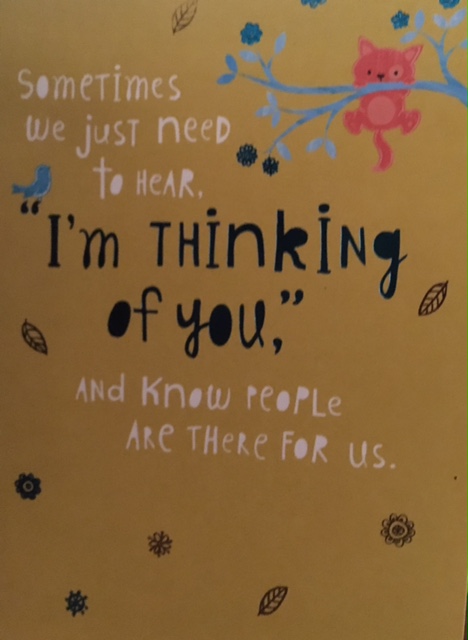 Sometimes
we just need
to HeAR,
“I'm THinking
of you,”
AND KNOW PEOPLe
ARe THeRe FOR us.